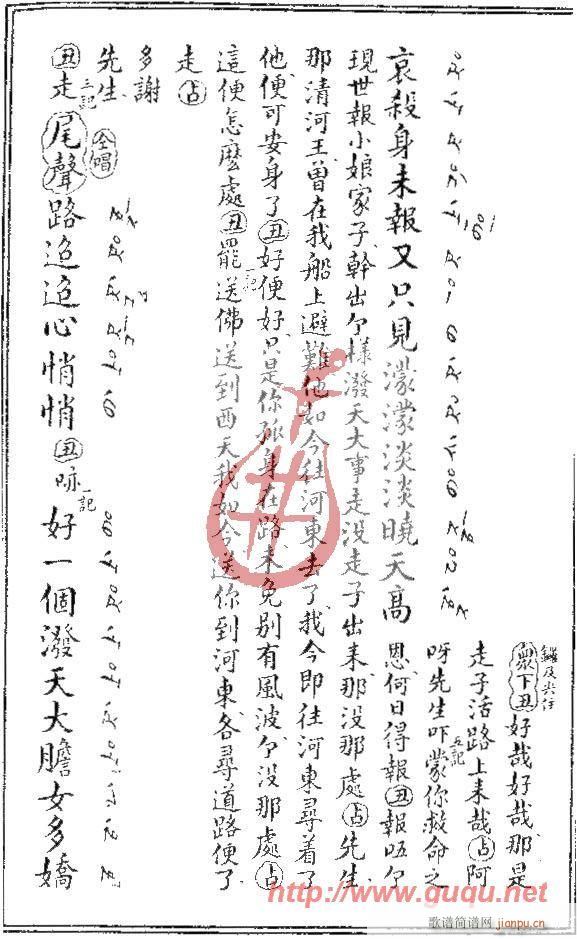 鑼及尖住
衆下丑好哉好哉那是
走子活路上来哉占阿
呀先生吓蒙你救命之
五記
恩何日得報丑報唔个
哀殺身未報又只見濛濛淡淡曉天高
現世報小娘家子幹出个樣潑天大事走没走子出来那没那處占先生
那清河王曽在我船上避難他如今往河東去了我今即往河東尋着了
他便可安身了丑好便好只是你孤身在路未免别有風波个没那處占
這便怎麽處丑罷送佛送到西天我如今送你到河東各尋道路便了
一記
走占
多謝
先生
三記
丑走尾聲路迢迢心悄悄丑咏好一個潑天大膽女多嬌
仝唱
一記
http://www.guqu.net
歌谱简谱网
jianpu.cn